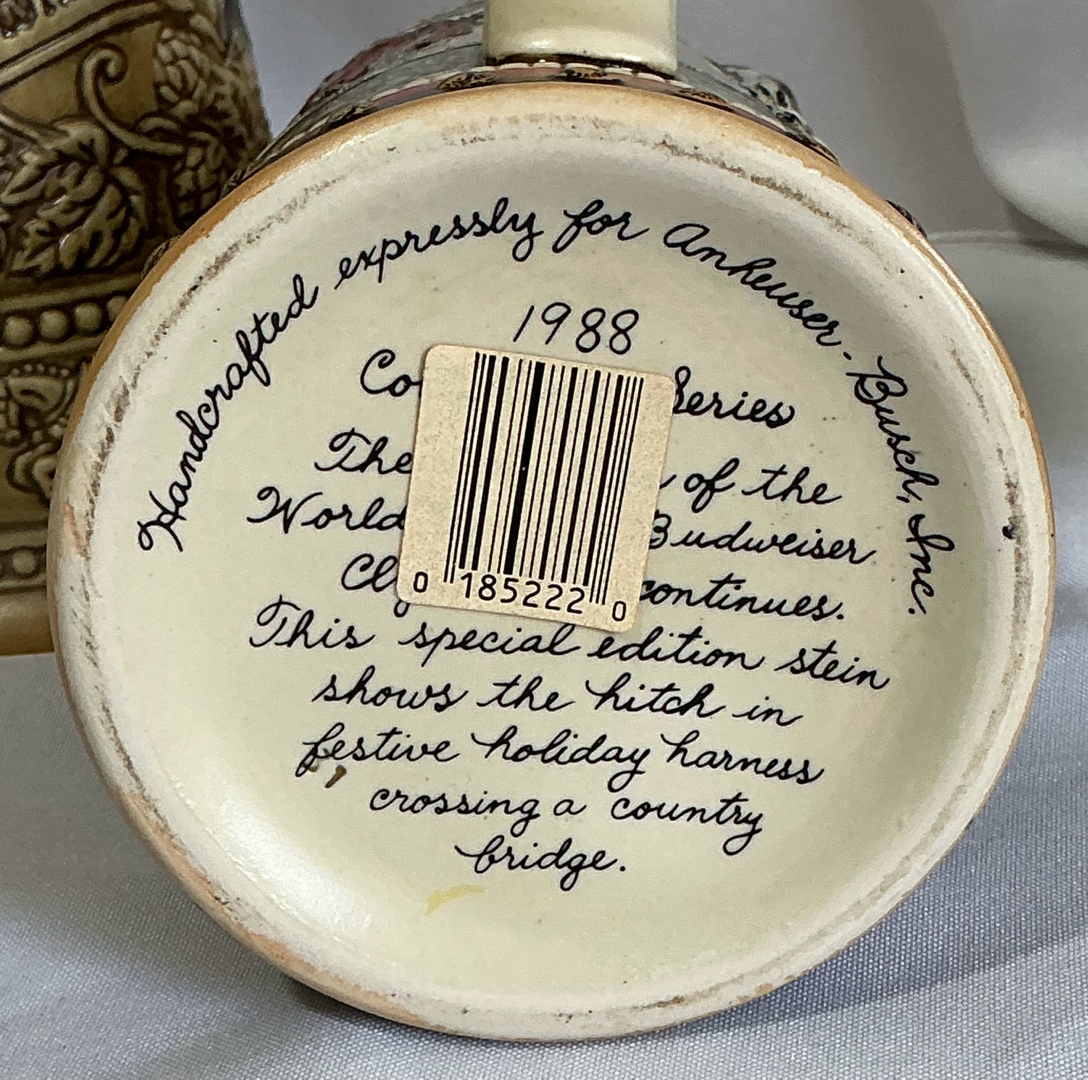 Handcrafted expressly for Anheuser-Busch, Inc.
1988
Series
The of the
World Budweiser
continues.
This special edition stein
shows the hitch in
festive holiday harness
crossing a country
bridge.
0 185222 0